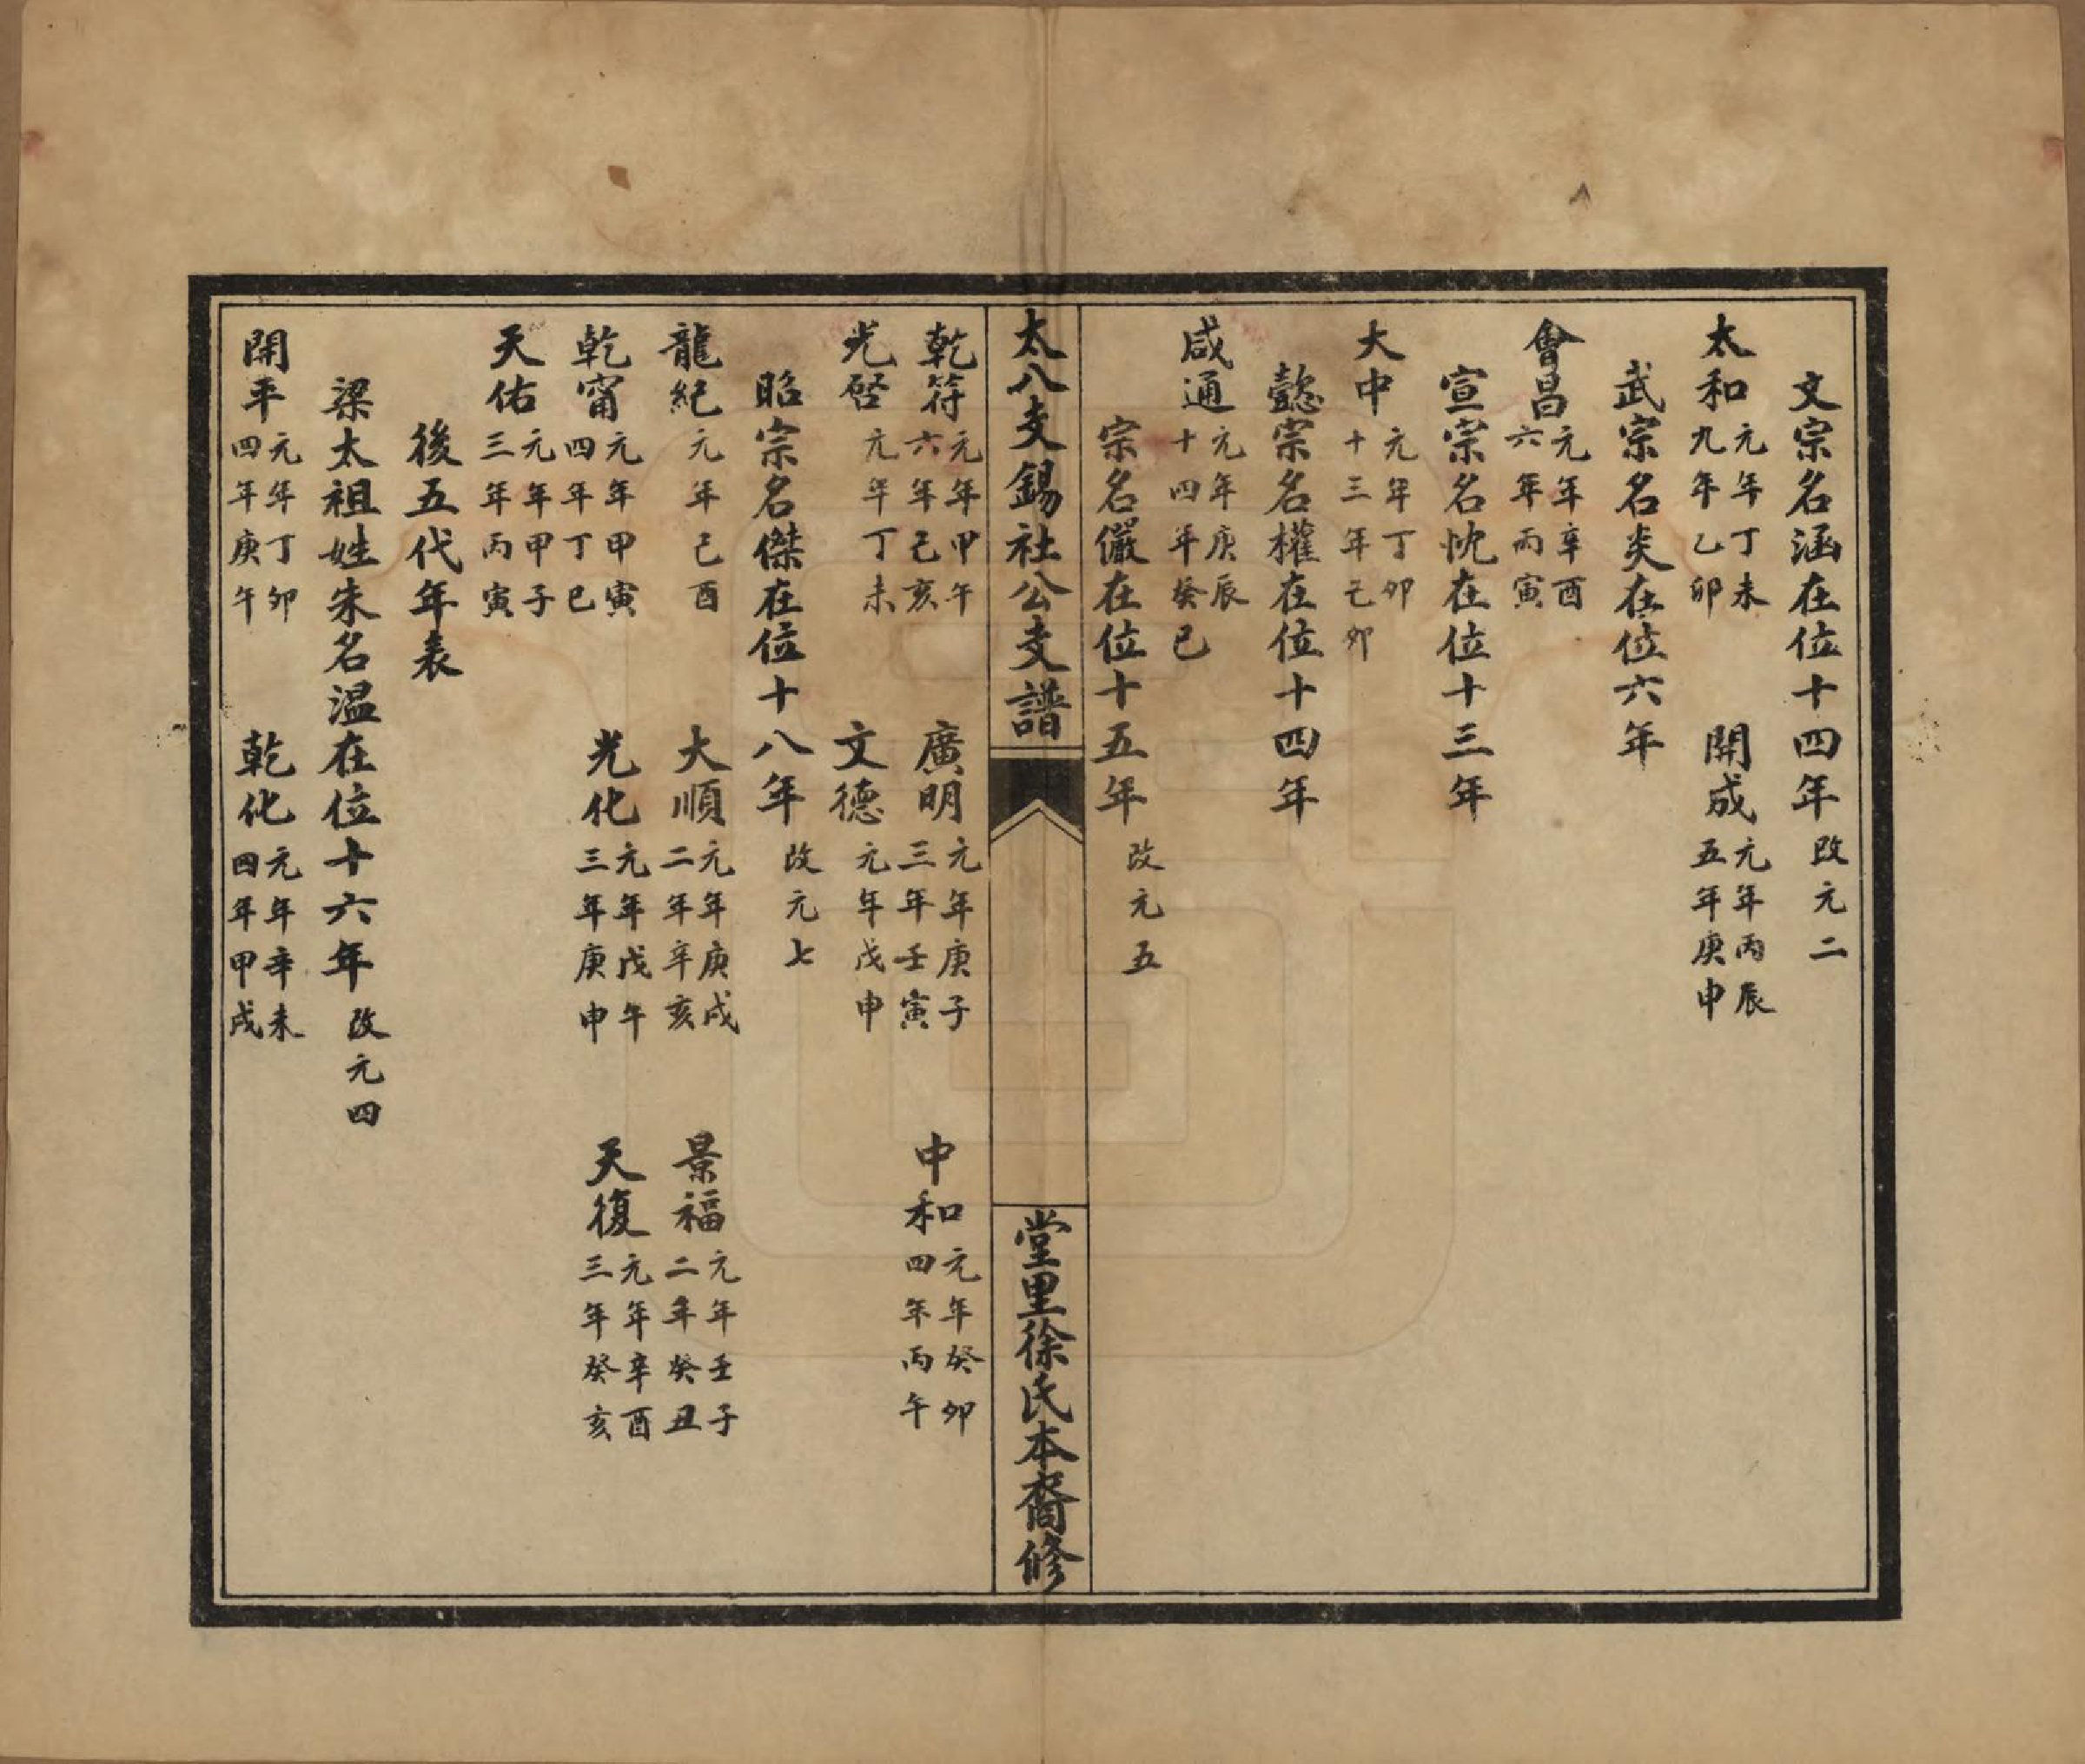 文宗名涵在位十四年 改元二
太和 元年丁未 九年乙卯 開成 元年丙辰 五年庚申
武宗名炎在位六年
會昌 元年辛酉 六年丙寅
宣宗名忱在位十三年
大中 元年丁卯 十三年己卯
懿宗名權在位十四年
咸通 元年庚辰 十四年癸巳
宗名儼在位十五年 改元五
太八支錫社公支譜 堂里徐氏本裔修
乾符 元年甲午 六年己亥 廣明 元年庚子 三年壬寅 中和 元年癸卯 四年丙午
光啓 元年丁未 文德 元年戊申
昭宗名傑在位十八年 改元七
龍紀 元年己酉 大順 元年庚戌 二年辛亥 景福 元年壬子 二年癸丑
乾甯 元年甲寅 四年丁巳 光化 元年戊午 三年庚申 天復 元年辛酉 三年癸亥
天佑 元年甲子 三年丙寅
後五代年表
梁太祖姓朱名溫在位十六年 改元四
開平 元年丁卯 四年庚午 乾化 元年辛未 四年甲戌